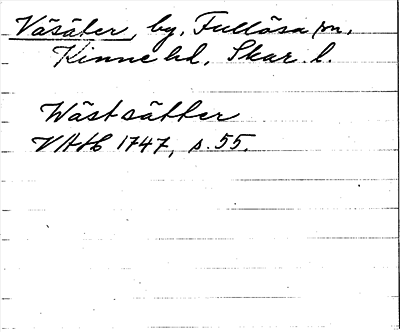 Väsäter, by, Fullösa sn,
Kinne hd, Skar. l.
Wästsätter
VAH 1747, s. 55.